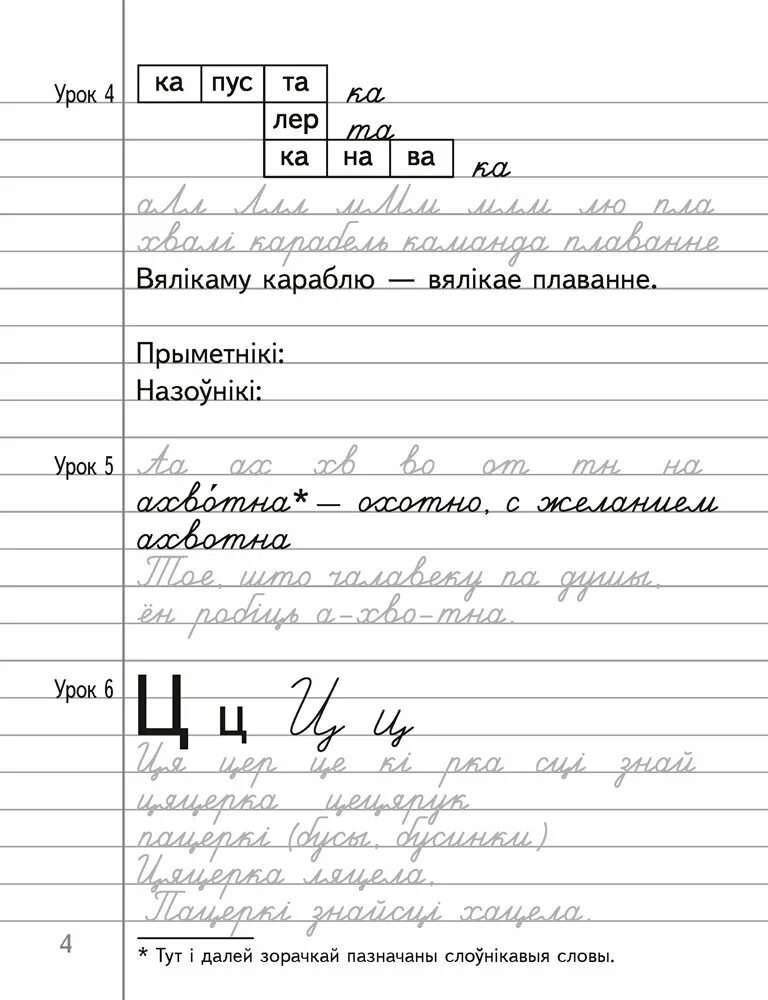 Урок 4
ка пус та ка
лер та
ка на ва ка
аЛл Ллл мМм млм лю пла
хвалі карабель каманда плаванне
Вялікаму караблю — вялікае плаванне.
Прыметнікі:
Назоўнікі:
Урок 5
Аа ах хв во от тн на
ахво́тна* — охотно, с желанием
ахвотна
Тое, што чалавеку па душы,
ён робіць а-хво-тна.
Урок 6
Ц ц Ц ц
Ця цер це кі рка сці знай
цяцерка цецярук
пацеркі (бусы, бусинки)
Цяцерка ляцела,
Пацеркі знайсці хацела.
4
* Тут і далей зорачкай пазначаны слоўнікавыя словы.